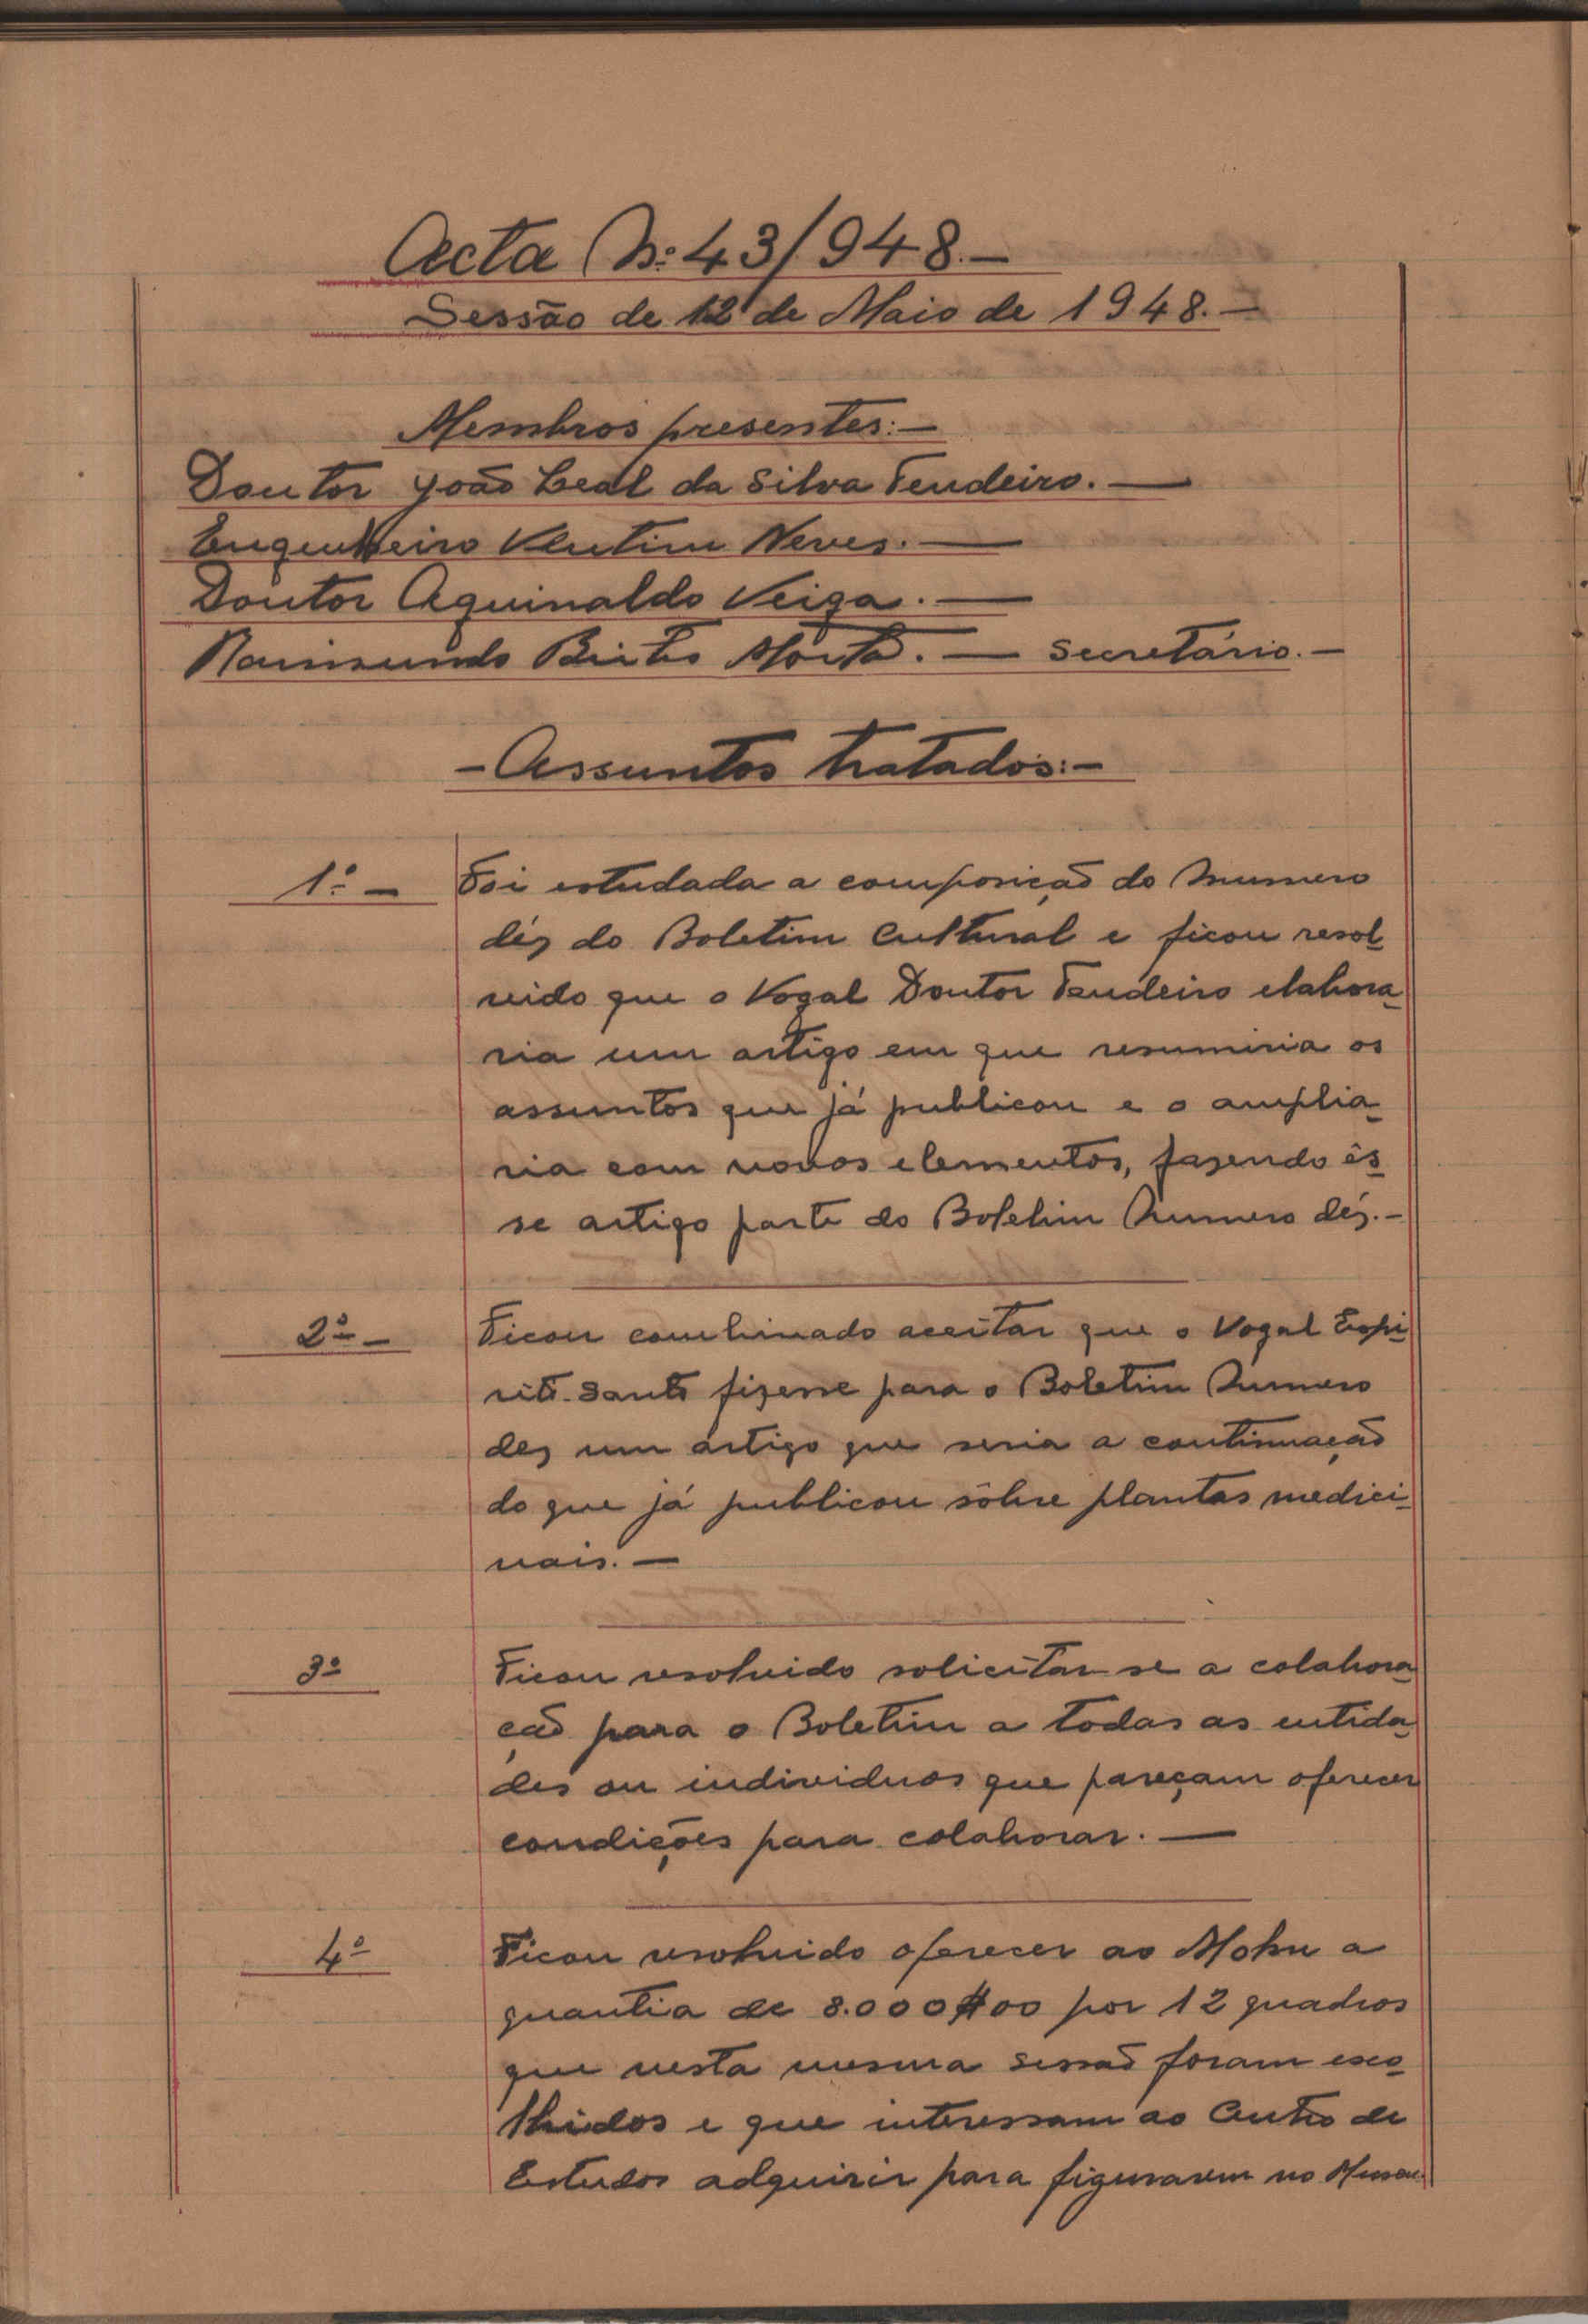 Acta N.º 43/948.—
Sessão de 12 de Maio de 1948.—
Membros presentes:—
Doutor João Leal da Silva Tendeiro.—
Engenheiro Ventim Neves.—
Doutor Aguinaldo Veiga.—
Raimundo Brites Moita.— Secretário.—
-Assuntos tratados:-
1.º — Foi estudada a composição do Numero
déz do Boletim Cultural e ficou resol-
vido que o Vogal Doutor Tendeiro elabora-
ria um artigo em que resumiria os
assuntos que já publicou e o amplia-
ria com novos elementos, fazendo ês-
se artigo parte do Boletim Numero déz.-
2º — Ficou combinado aceitar que o Vogal Espi-
rito-Santo fizesse para o Boletim Numero
dez um artigo que seria a continuação
do que já publicou sôbre plantas medici-
nais.—
3º Ficou resolvido solicitar-se a colabora-
ção para o Boletim a todas as entida-
des ou individuos que pareçam oferecer
condições para colaborar.—
4º Ficou resolvido oferecer ao Mohn a
quantia de 8.000$00 por 12 quadros
que nesta mesma sessão foram esco-
lhidos e que interessam ao Centro de
Estudos adquirir para figurarem no Museu